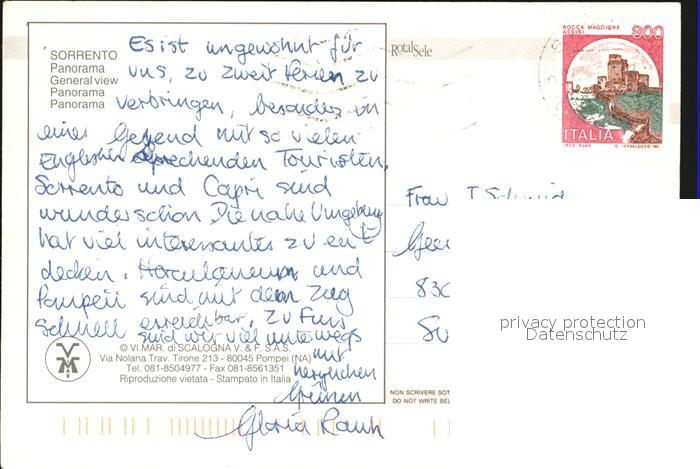 SORRENTO
Panorama
General view
Panorama
Panorama
Es ist ungewohnt für
uns, zu zweit Ferien zu
verbringen, besonders in
einer Gegend mit so vielen
Englisch sprechenden Touristen.
Sorrento und Capri sind
wunderschön. Die nahe Umgebung
hat viel interessantes zu ent
decken. Herculaneum und
Pompeii sind mit dem Zug
schnell erreichbar. Zu Fuss
sind wir viel unterwegs
mit
herzlichen
Grüssen
Gloria
© VI.MAR. di SCALOGNA V. & F. S.A.S.
Via Nolana Trav. Tirone 213 - 80045 Pompei (NA)
Tel. 081-8504977 - Fax 081-8561351
Riproduzione vietata - Stampato in Italia
RotalSele
ROCCA MAGGIORE
ASSISI
800
ITALIA
Frau T. Schmid
830
privacy protection
Datenschutz
NON SCRIVERE SOT
DO NOT WRITE BEL